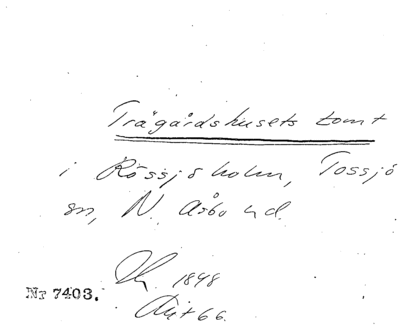 Trägårdshusets tomt
i Rössjöholm, Tossjö
sn, N. Åsbo hd.
1848
Nr 7403.
Akt 66.